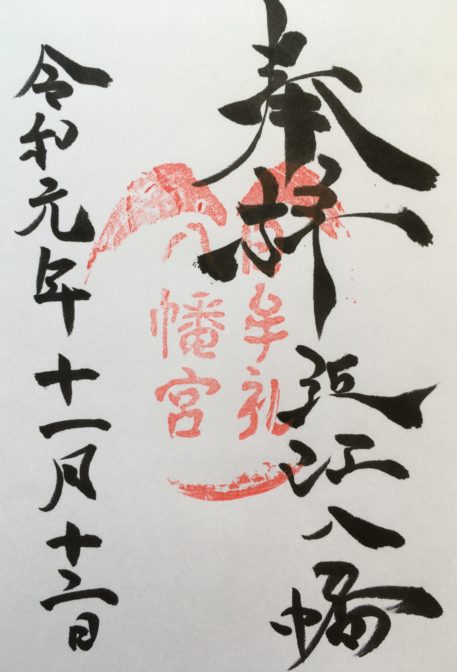 奉拝
近江八幡
日牟礼
八幡宮
令和元年十一月十二日